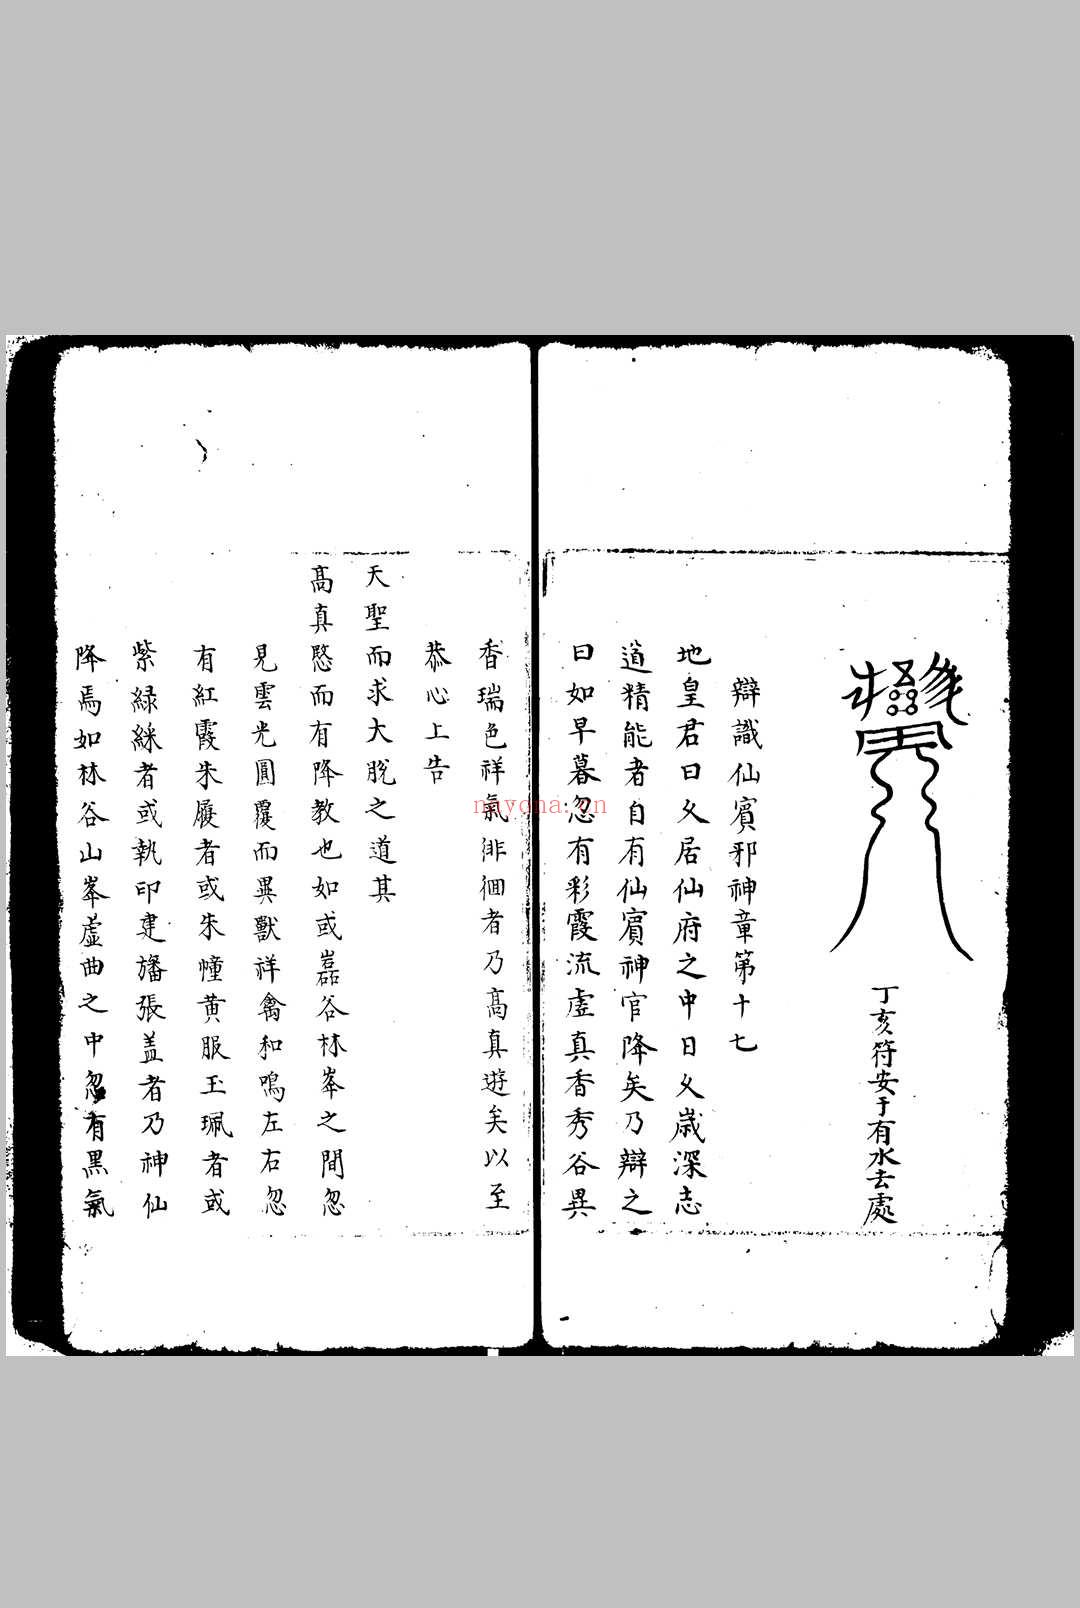 丁亥符安于有水去處
辯識仙賓邪神章第十七
地皇君曰久居仙府之中日久歳深志
道精能者自有仙賓神官降矣乃辯之
曰如早暮忽有彩霞流虛真香秀谷異
香瑞色祥氣徘徊者乃髙真遊矣以至
恭心上告
天聖而求大脫之道其
髙真愍而有降教也如或磊谷林峯之間忽
見雲光圓覆而異獸祥禽和鳴左右忽
有紅霞朱履者或朱幢黄服玉珮者或
紫緑綵者或執印建旛張盖者乃神仙
降焉如林谷山峯虛曲之中忽有黑氣
nayona.cn